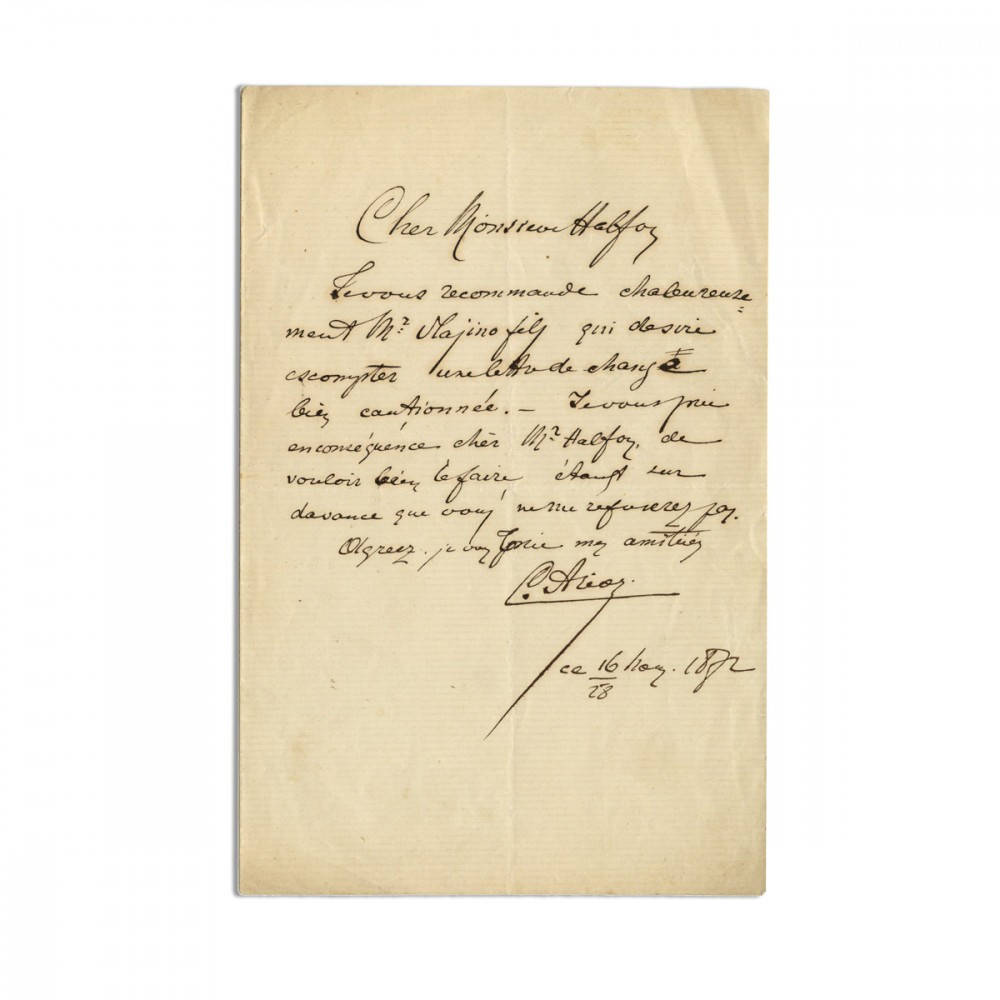 Cher Monsieur Halfon
Je vous recommande chaleureuse=
ment Mr. Majino fils qui desire
escompter une lettre de change
bien cautionnée. — Je vous prie
en conséquence chèr Mr. Halfon, de
vouloir bien le faire étant sur
davance que vous ne me refuserez pas.
Agreez je vous prie mes amitiés
C.
ce 16/28 Nov. 1872